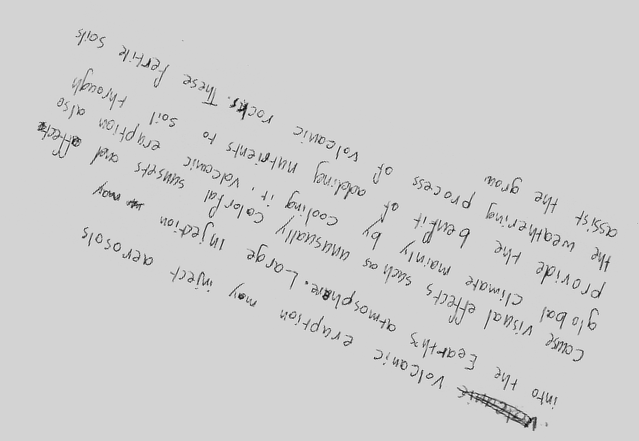 Volcanic eruption may inject aerosols
into the Eearth's atmosphere. Large injection may
cause visual effects such as unusually colorful sunsets and affect
global climate mainly by cooling it, volcanic eruption also
provide the benfit of adding nutrients to soil through
the weathering process of volcanic rocks. These fertile soils
assist the grow